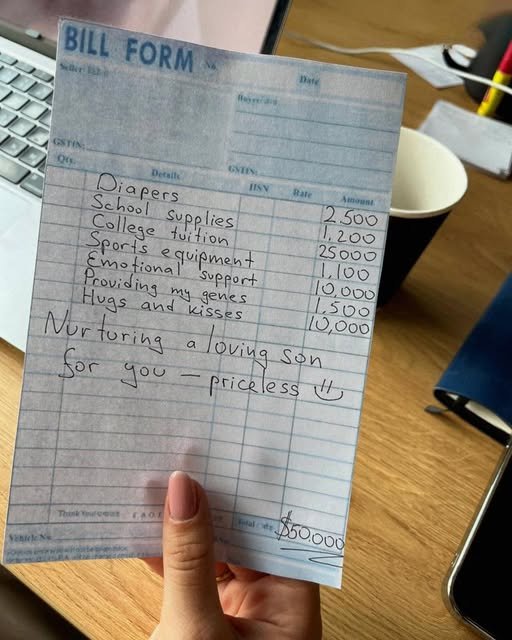 BILL FORM No
Date
Seller
Buyer
GSTIN:
GSTIN:
Qty. Details HSN Rate Amount
Diapers 2,500
School supplies 1,200
College tuition 25000
Sports equipment 1,100
Emotional support 10,000
Providing my genes 1,500
Hugs and kisses 10,000
Nurturing a loving son
for you – priceless
Thank You E & O E Total $50,000
Vehicle No.